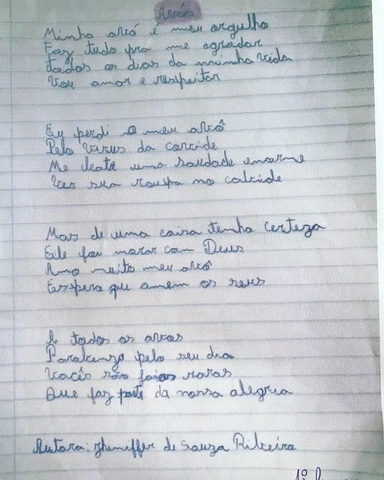 Avós
Minha avó é meu orgulho
Faz tudo pra me agradar
Todos os dias da minha vida
Vou amor e respeitar
Eu perdi o meu avô
Pelo vírus da covide
Me bate uma saudade enorme
Ver sua roupa no cabide
Mas de uma coisa tenho certeza
Ele foi morar com Deus
Amo muito meu avô
Espero que amem os seus
A todos os avos
Parabenzo pelo seu dia
Vocês são joias raras
Que faz parte da nossa alegria
Autora: Jheniffer de Souza Ribeira
1º